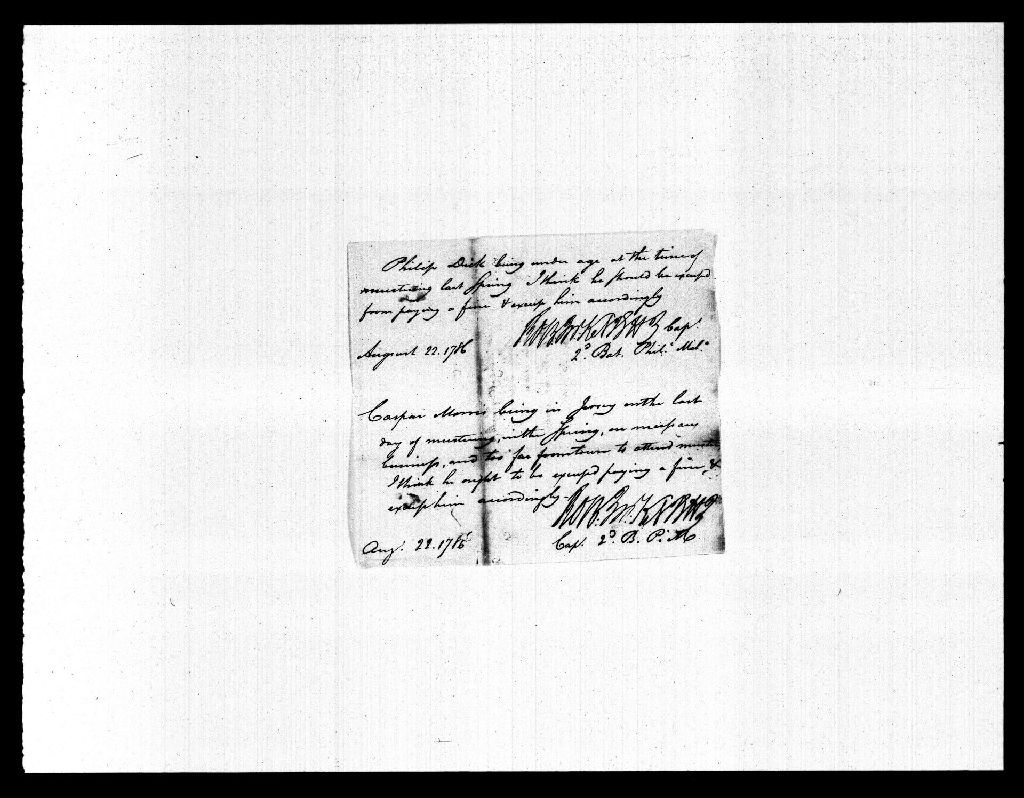 Philip Dick being under age at the time of
mustering last Spring I think he should be excus'd
from paying a fine & excuse him accordingly
Cap.t
August 22. 1786
2.d Bat. Phil.a Mil.a
Caspar Morris being in Jersey on the last
day of mustering, in the Spring, on necessary
business, and too far from town to attend muster
I think he ought to be excused paying a fine, &
excuse him accordingly
Aug.t 22. 1786
Cap.t 2.d B. P. M